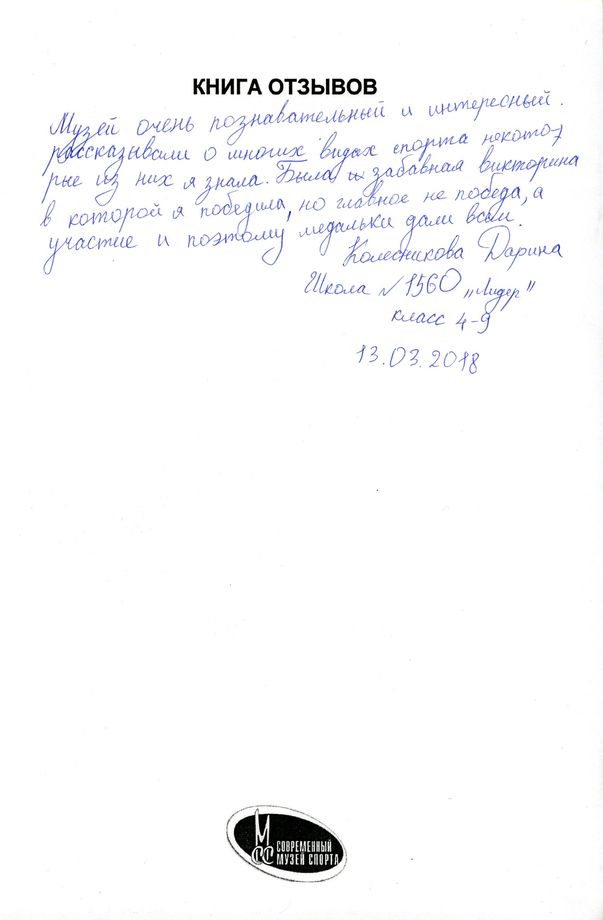 КНИГА ОТЗЫВОВ
Музей очень познавательный и интересный.
Рассказывали о многих видах спорта некото-
рые из них я знала. Была и забавная викторина
в которой я победила, но главное не победа, а
участие и поэтому медальки дали всем.
Колесникова Дарина
Школа №1560 „Лидер"
класс 4-9
13.03.2018
МСС СОВРЕМЕННЫЙ
МУЗЕЙ СПОРТА